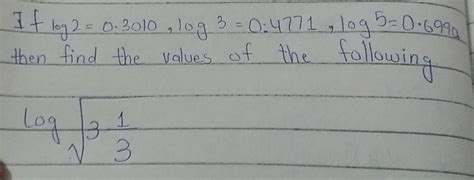 If log 2 = 0.3010, log 3 = 0.4771, log 5 = 0.6990
then find the values of the following
log √3 1/3